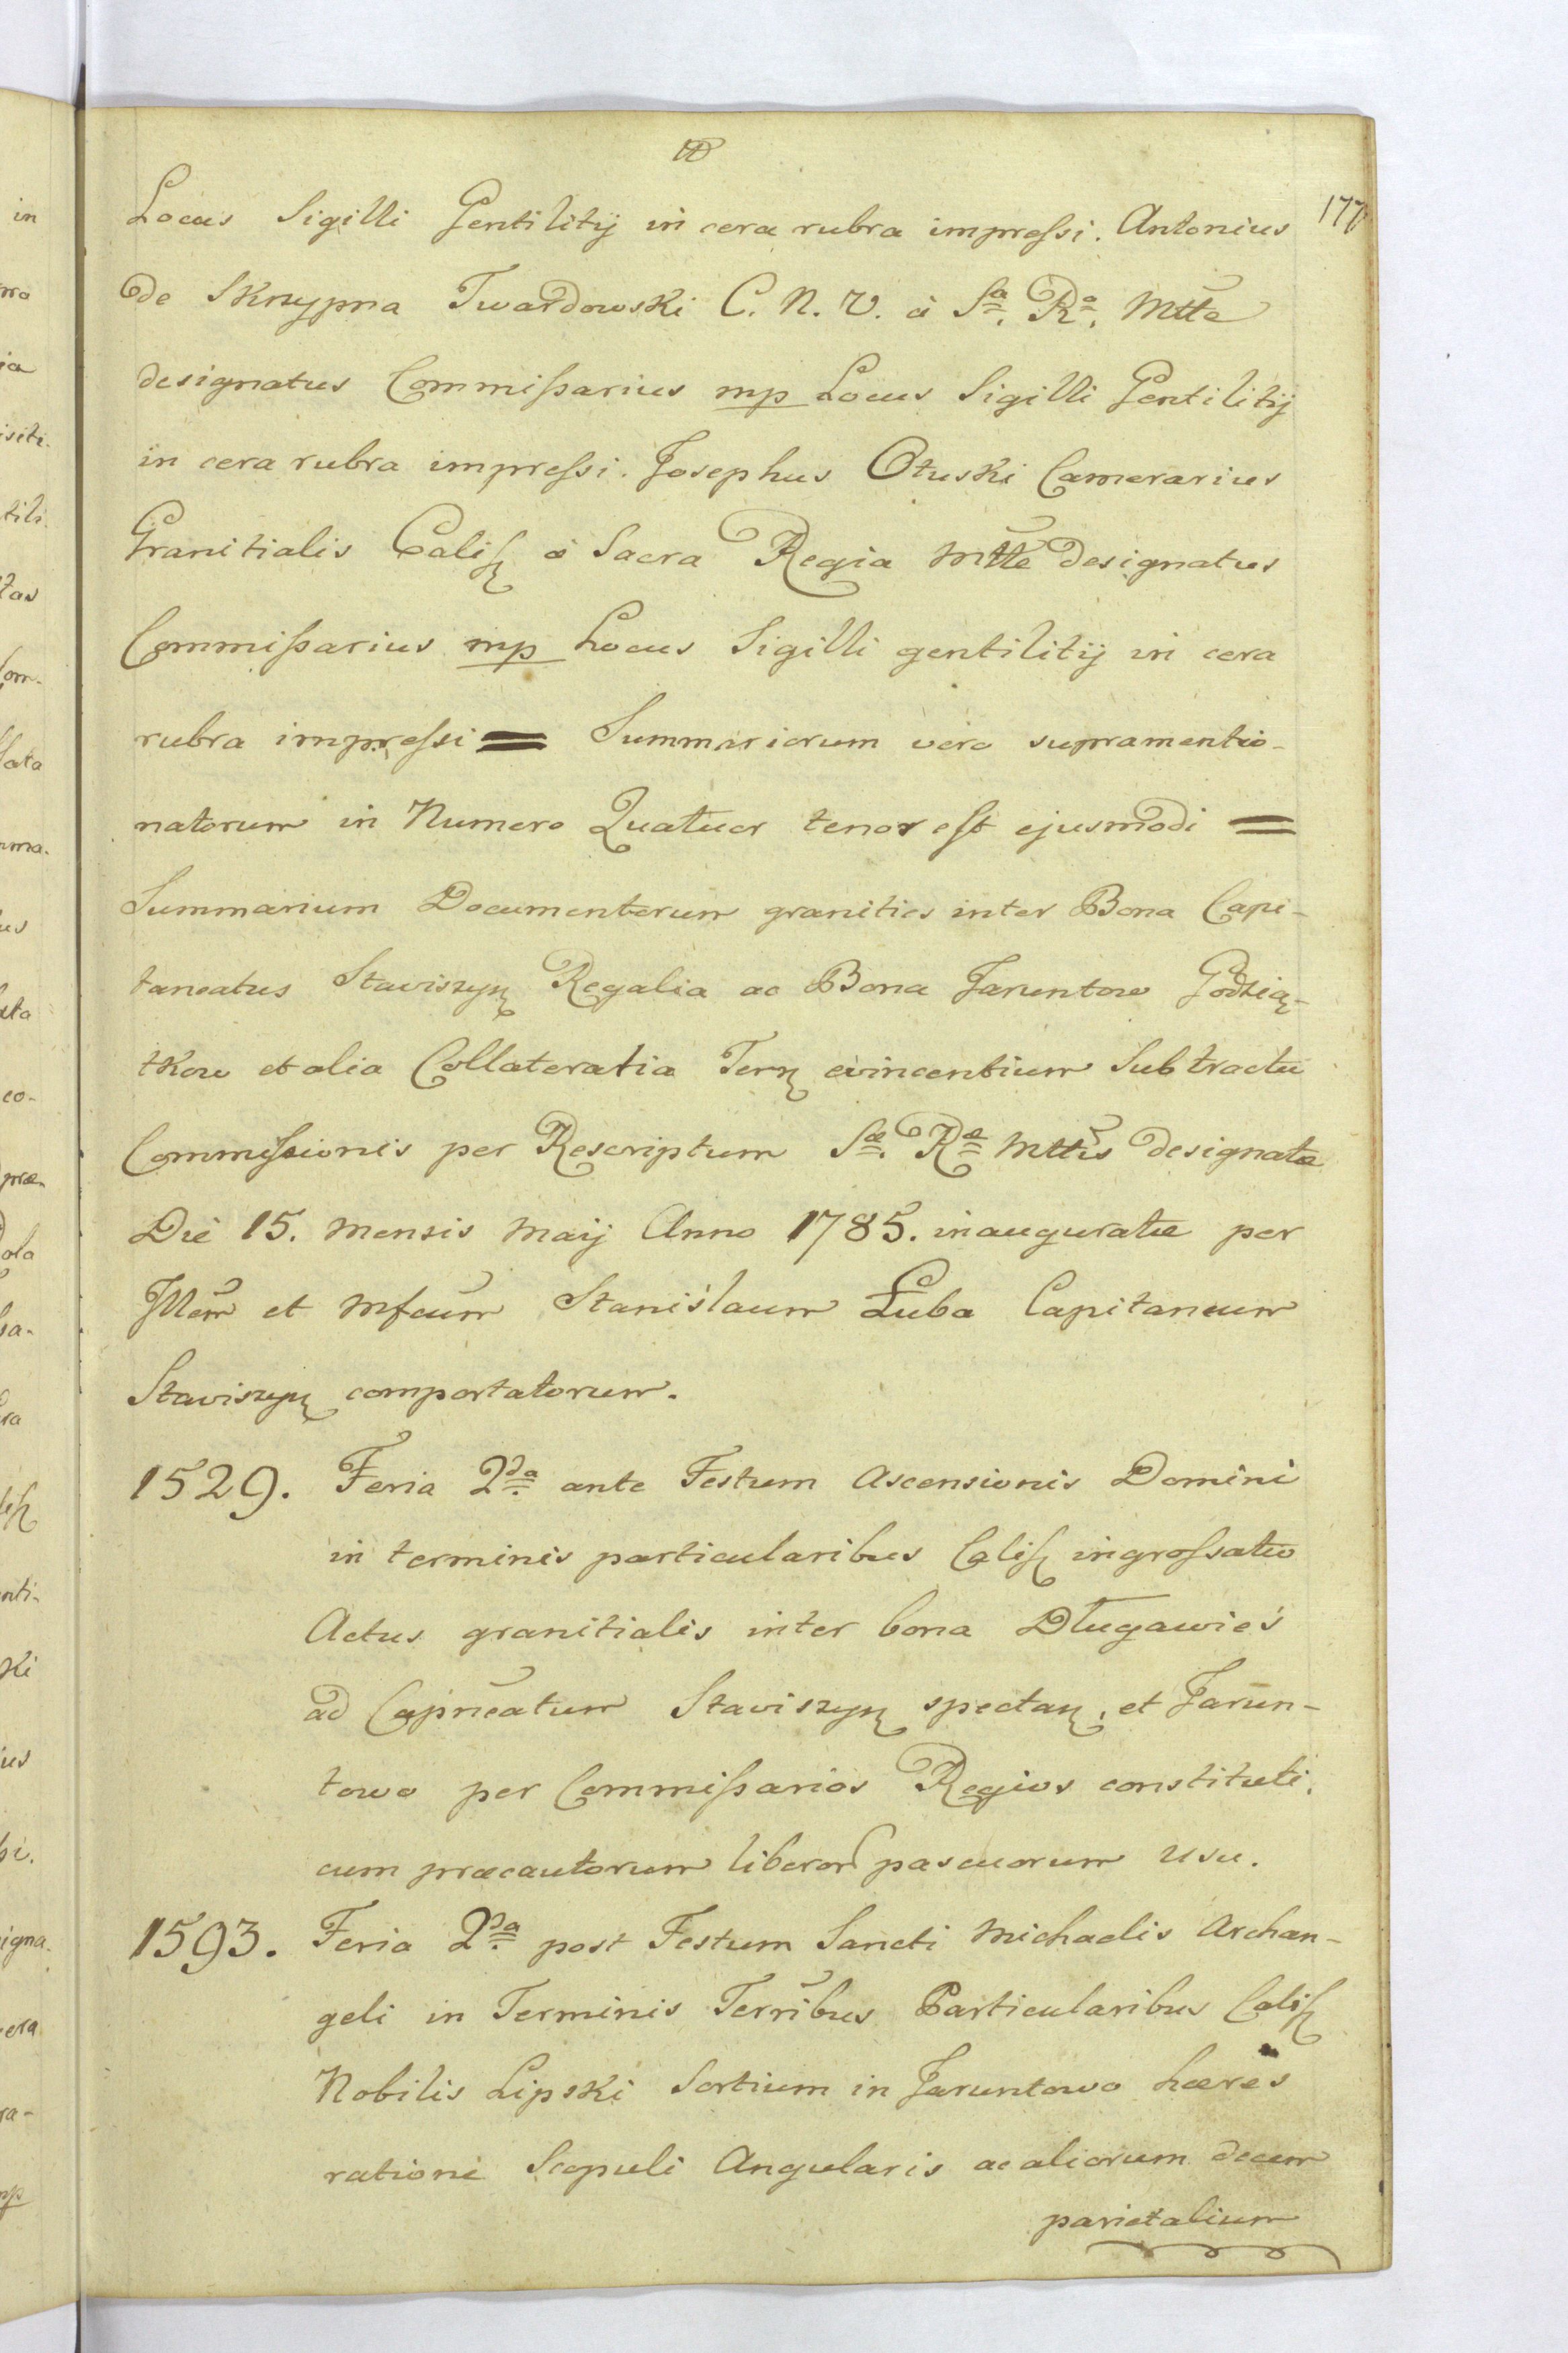 177
Locus Sigilli Gentilitij in cera rubra impreſsi. Antonius
de Skrzypna Twardowski C. N. V. à Sa. Ra. Mtte
designatus Commiſsarius mp Locus Sigilli Gentilitij
in cera rubra impreſsi. Josephus Otuski Camerarius
Granitialis Caliſ à Sacra Regia Mtte designatus
Commiſsarius mp Locus Sigilli gentilitij in cera
rubra impreſsi = Summariorum vero supramentio-
natorum in Numero Quatuor tenor eſt ejusmodi =
Summarium Documentorum granities inter Bona Capi-
taneatus Staviszyn Regalia ac Bona Jaruntow Godzią-
tkow et alia Collateratia Terrz evincentium Sub tractu
Commiſsionis per Rescriptum Sæ. Ræ Mttis designatæ
Die 15. Mensis Maij Anno 1785. inauguratæ per
Jllem et Mfcum Stanisłaum Łuba Capitaneum
Staviszyn comportatorum.
1529. Feria 2da. ante Festum Ascensionis Domini
in terminis particularibus Caliſ ingroſsatio
Actus granitialis inter bona Długawieś
ad Capneatum Staviszyn spectan, et Jarun-
towo per Commiſsarios Regios constituti.
cum præcautorum liberor pascuorum usu.
1593. Feria 2da. post Festum Sancti Michaelis Archan-
geli in Terminis Terribus Particularibus Caliſ
Nobilis Lipski Sortium in Jaruntowo hæres
ratione Scopuli Angularis ac aliorum decem
parietalium